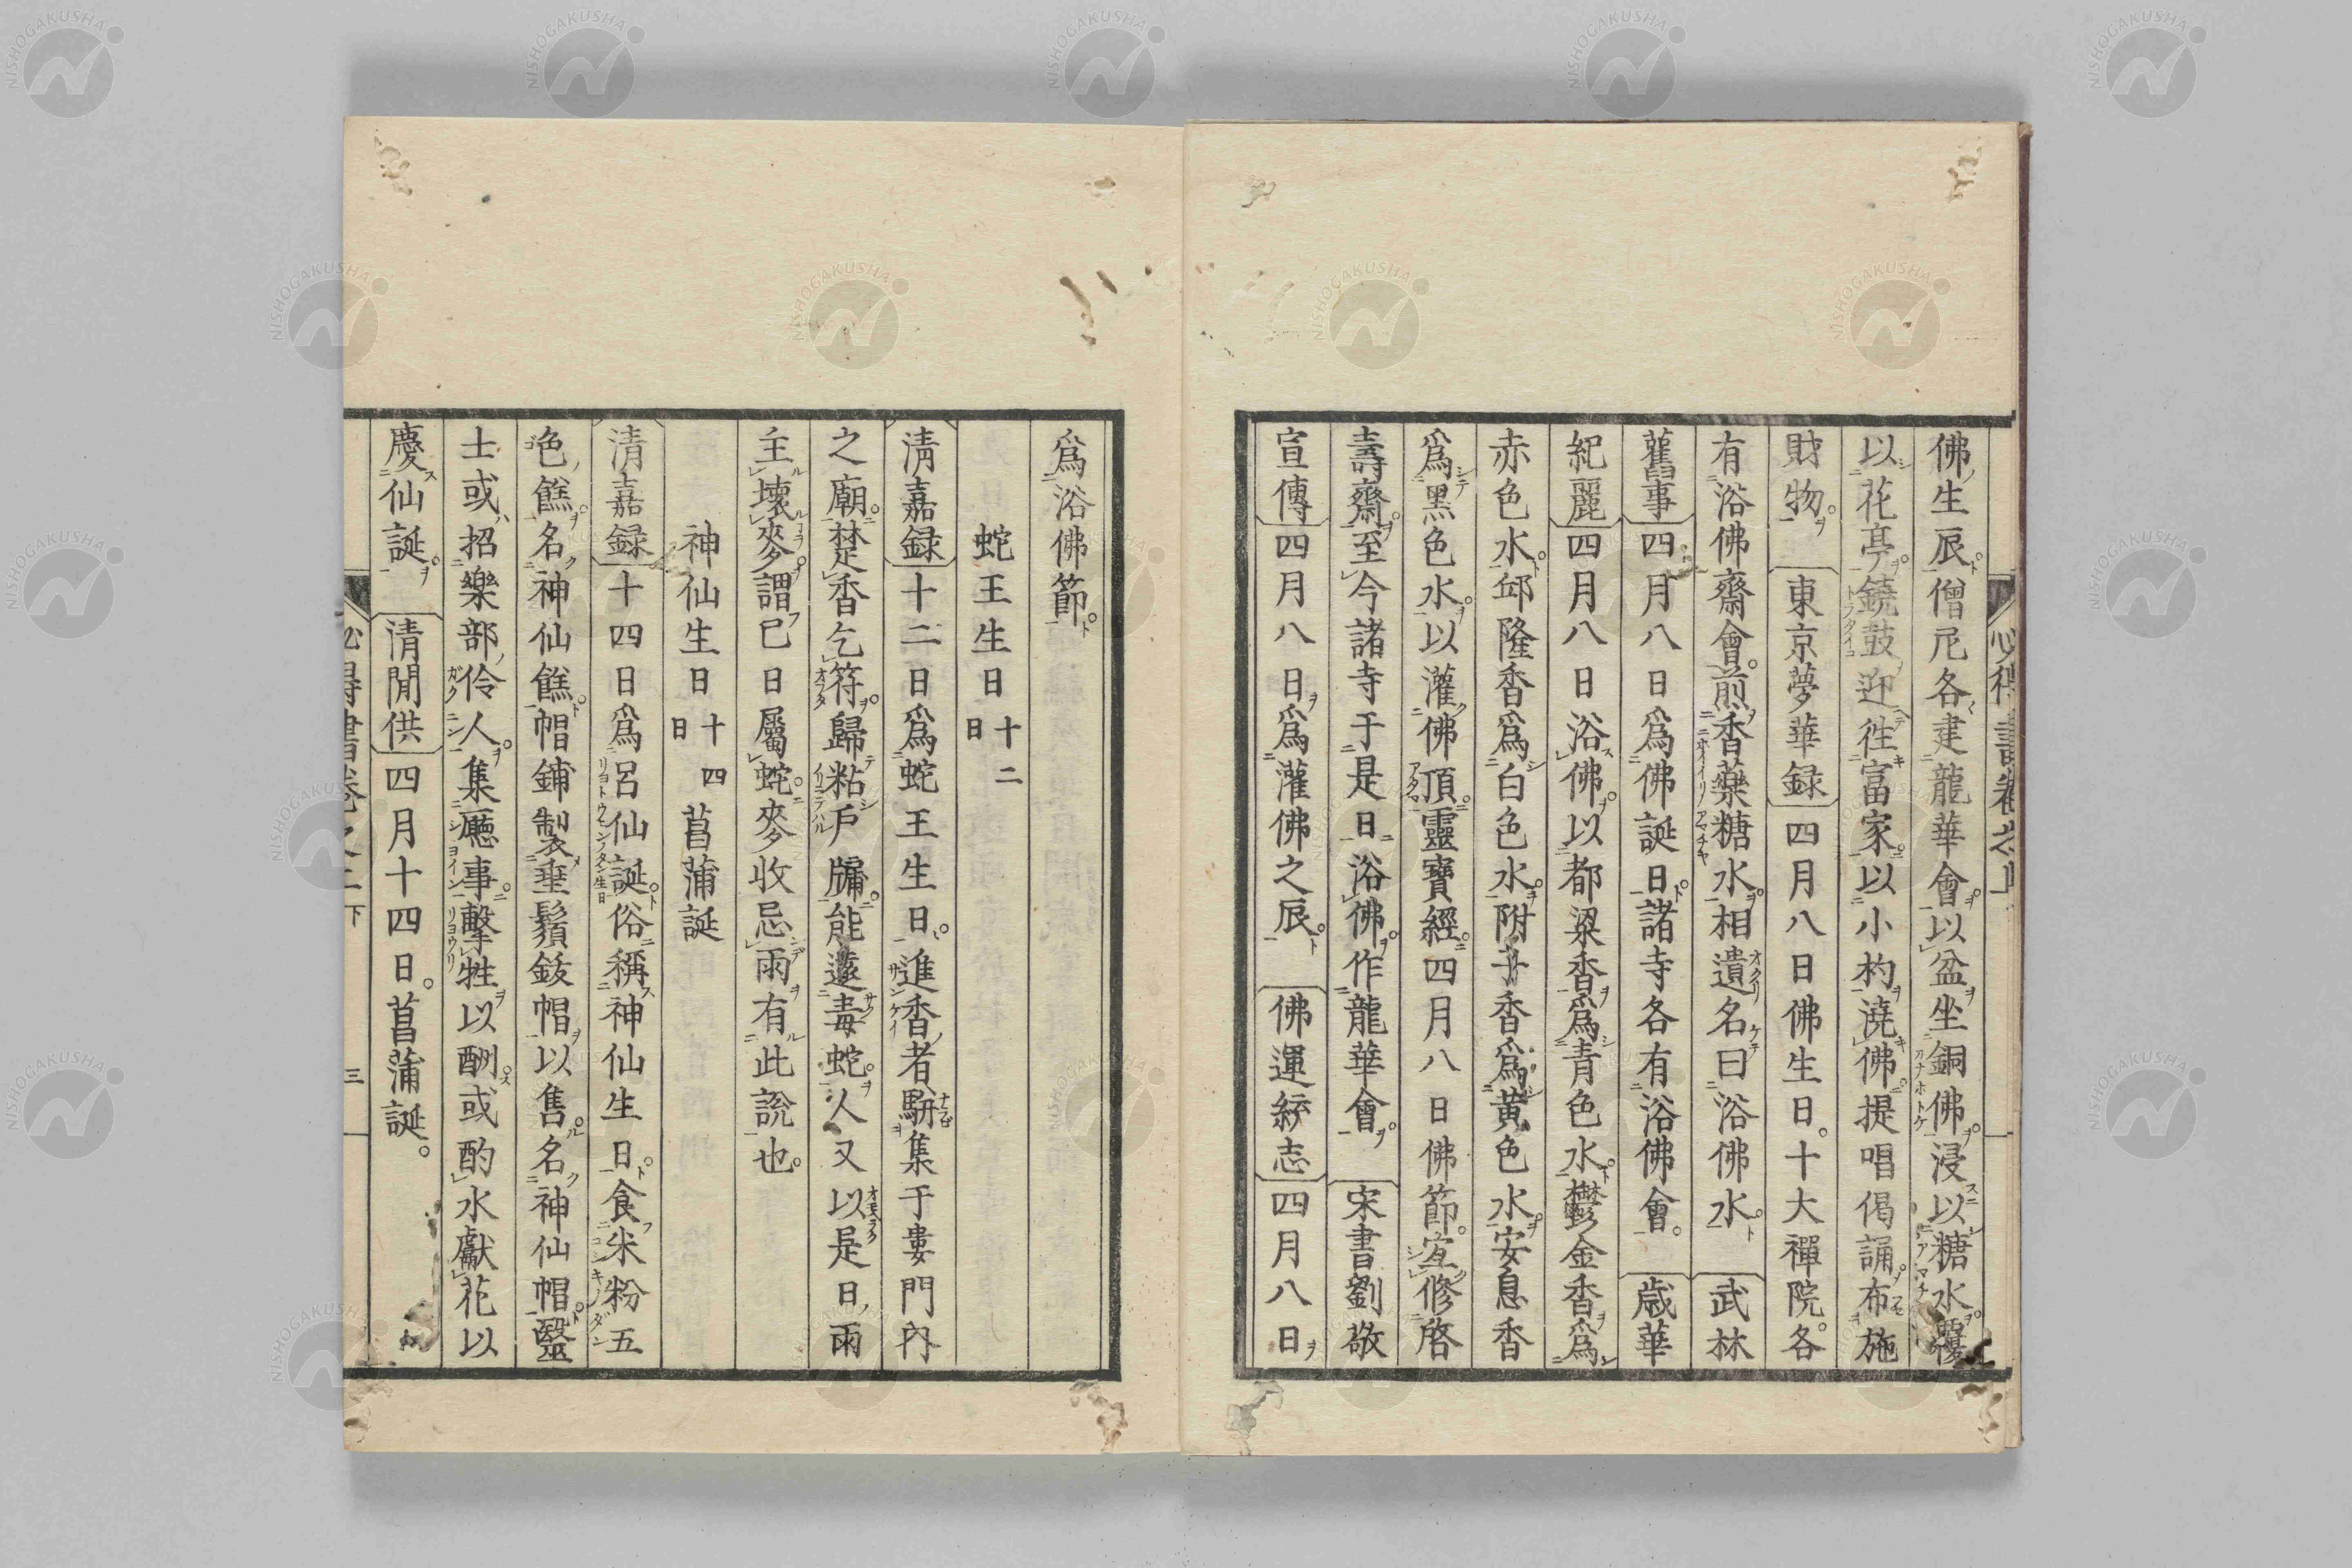 佛生辰僧尼各建龍華會以盆坐銅佛浸以糖水覆
以花亭鐃鼓迎徃富家以小杓澆佛提唱偈誦布施
財物東京夢華録四月八日佛生日十大禪院各
有浴佛齋會煎香藥糖水相遺名曰浴佛水武林
舊事四月八日爲佛誕日諸寺各有浴佛會歳華
紀麗四月八日浴佛以都梁香爲青色水鬱金香爲
赤色水邱隆香爲白色水附子香爲黄色水安息香
爲黑色水以灌佛頂靈寶經四月八日佛節宐修啓
壽齋至今諸寺于是日浴佛作龍華會宋書劉敬
宣傳四月八日爲灌佛之辰佛運統志四月八日
爲浴佛節
蛇王生日十二日
清嘉録十二日爲蛇王生日進香者駢集于婁門内
之廟焚香乞符歸粘戶牖能遠毒蛇人又以是日雨
主壞麥謂巳日屬蛇麥收忌雨有此說也
神仙生日十四日菖蒲誕
清嘉録十四日爲呂仙誕俗稱神仙生日食米粉五
色餻名神仙餻帽鋪製垂鬚鈸帽以售名神仙帽毉
士或招樂部伶人集廳事擊牲以酬或酌水獻花以
慶仙誕清閒供四月十四日菖蒲誕
三
NISHOGAKUSHA